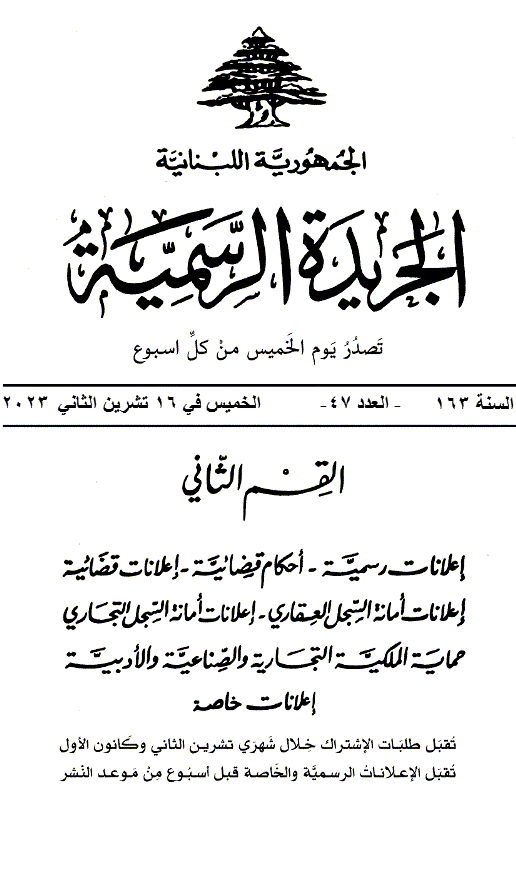 الجُمهُوريَّة اللبْنانيَّة
الجَريدَة الرسَّمِيَّة
تَصدُرُ يَوم الخَميس مِنْ كلِّ اسبوع
السنة ١٦٣ - العدد ٤٧- الخميس في ١٦ تشرين الثاني ٢٠٢٣
القِسْم الثّاني
إعلانات رسميَّة - أحكام قضائيَّة - إعلانات قضائية
إعلانات أمانة السِّجل العقاري - إعلانات أمانة السِّجل التجاري
حماية الملكيَّة التجارية والصِّناعيَّة والأدبيَّة
إعلانات خاصة
تُقبَل طلبَات الإشتراك خِلال شَهرَي تشرين الثاني وكَانون الأول
تُقبَل الإعلاناتُ الرسميَّة والخَاصة قبل أسبُوع مِنْ مَوعد النَشر